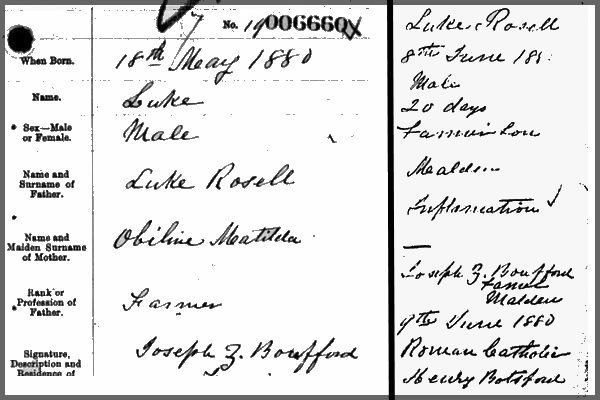 No. 19 006660
When Born. 18th May 1880
Name. Luke
Sex—Male or Female. Male
Name and Surname of Father. Luke Rosell
Name and Maiden Surname of Mother. Obiline Matilda
Rank or Profession of Father. Farmer
Signature, Description and Residence of Joseph Z. Boufford
Luke Rosell
8th June 188
Male
20 days
Farmer Son
Malden
Inflamation
—
Joseph Z. Boufford
Farmer
Malden
9th June 1880
Roman Catholic
Henry Botsford